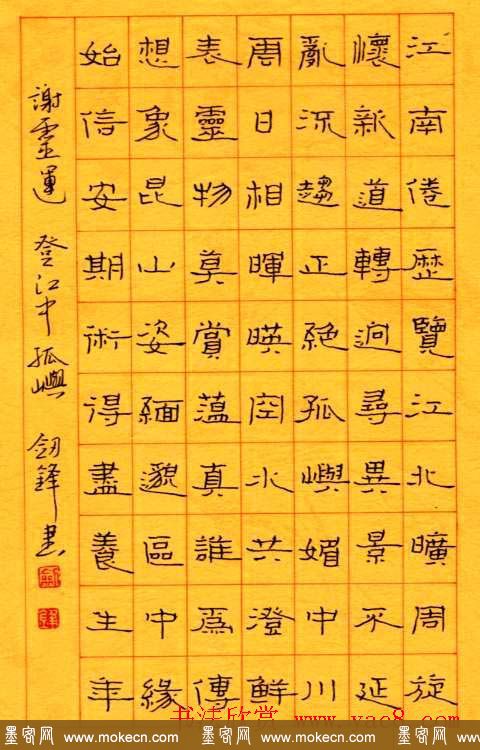 江南倦歷覽江北曠周旋
懷新道轉迥尋異景不延
亂流趨正絕孤嶼媚中川
雲日相暉暎空水共澄鮮
表靈物莫賞蕰真誰爲傳
想象昆山姿緬邈區中緣
始信安期術得盡養生年
謝靈運 登江中孤嶼 劍鋒書
书法欣赏 www.yac8.com
墨客网 www.mokecn.com 墨客网 www.mokecn.com 墨客网 www.mokecn.com